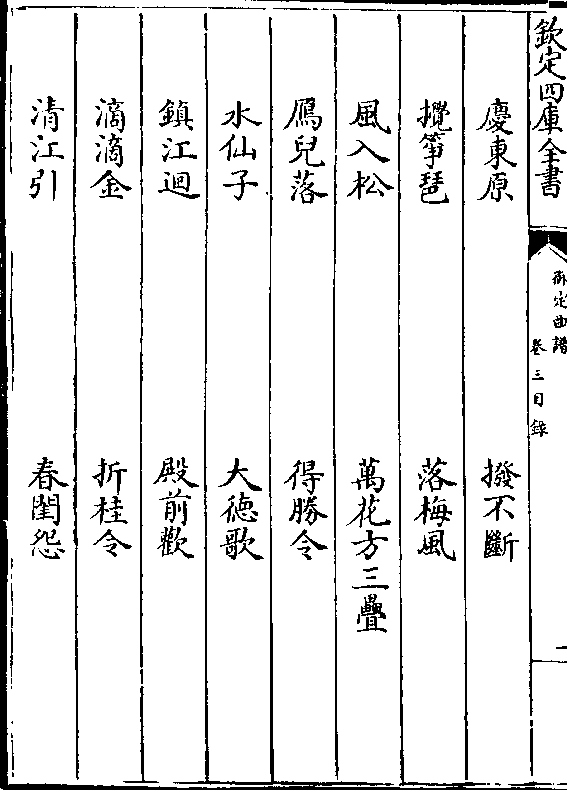 欽定四庫全書
御定曲譜
卷三目錄
慶東原 撥不斷
攪筝琶 落梅風
風入松 萬花方三疊
鴈兒落 得勝令
水仙子 大德歌
鎮江迴 殿前歡
滴滴金 折桂令
清江引 春閨怨